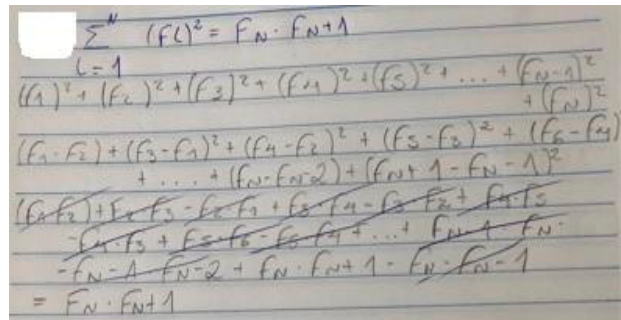 N
Σ (fi)² = FN · FN+1
i=1
(f1)² + (f2)² + (f3)² + (f4)² + (f5)² + ... + (FN-1)²
+ (FN)²
(f1·f2) + (f3-f1)² + (f4-f2)² + (f5-f3)² + (f6-f4)
+ ... + (fN-fN-2) + (fN+1-fN-1)²
(f1f2) + f2·f3 - f2·f1 + f3·f4 - f3·f2 + f4·f5
-f4·f3 + f5·f6 - f5·f4 + ... + FN-1·FN·
-FN-1·FN-2 + FN·FN+1 - FN·FN-1
= FN·FN+1